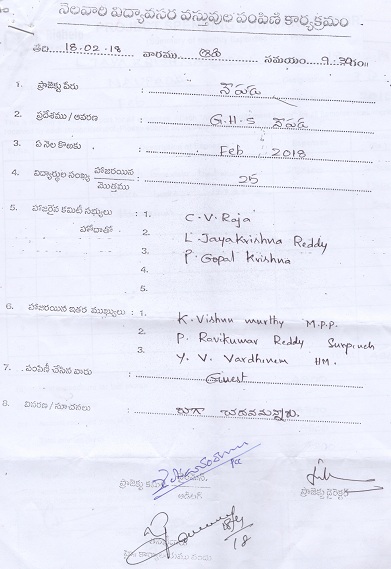 నెలవారి విద్యావసర వస్తువుల పంపిణి కార్యక్రమం
తేది 18.02.18 వారము ఆది సమయం 9:30గం॥
1. ప్రాజెక్టు పేరు : నౌపడ
2. ప్రదేశము / ఆవరణ : G.H.S నౌపడ
3. ఏ నెల కొఱకు : Feb 2018
4. విద్యార్థుల సంఖ్య హాజరయిన / మొత్తము : 25
5. హాజరైన కమిటీ సభ్యులు : 1. C.V. Raja
హోదాతో 2. L. Jayakrishna Reddy
3. P. Gopal Krishna
4.
5.
6. హాజరయిన ఇతర ముఖ్యులు : 1. K. Vishnu murthy M.P.P.
2. P. Ravikumar Reddy Surpinch
3. Y. V. Vardhinem HM.
7. పంపిణీ చేసిన వారు : Guest
8. వివరణ / సూచనలు : బాగా చదవమన్నారు.
ప్రాజెక్టు ప్రాజెక్టు డైరెక్టర్
18